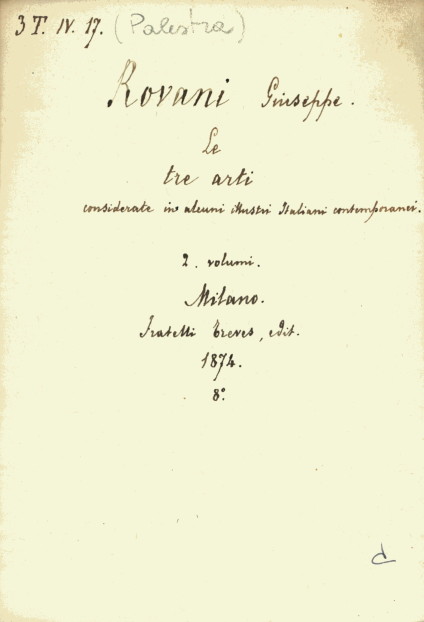 3 T. IV. 17. (Palestra)
Rovani Giuseppe.
Le
tre arti
considerate in alcuni illustri Italiani contemporanei.
2. volumi.
Milano.
Fratelli Treves, edit.
1874.
8º.
d